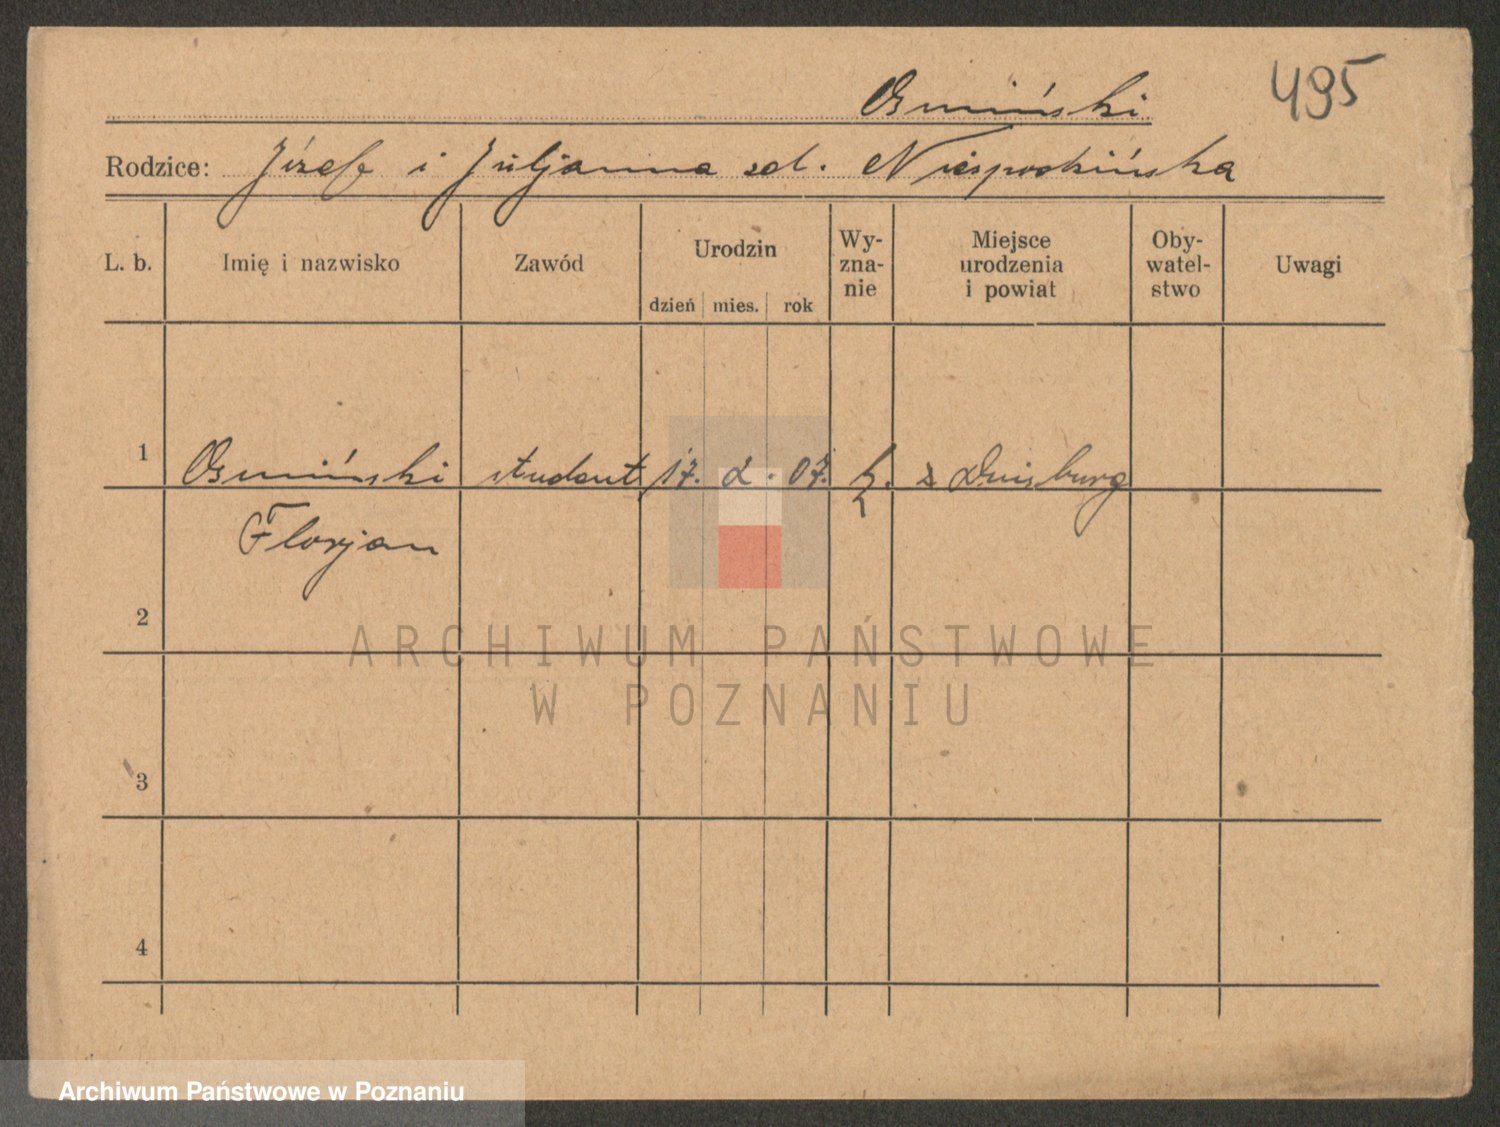 495
Osmiński
Rodzice: Józef i Juljanna zd. Niespodzińska
L. b. Imię i nazwisko Zawód Urodzin dzień mies. rok Wy-zna-nie Miejsce urodzenia i powiat Oby-watel-stwo Uwagi
1 Osmiński student 17. 2. 07. k. Duisburg
Florjan
2
3
4
ARCHIWUM PAŃSTWOWE
W POZNANIU
Archiwum Państwowe w Poznaniu